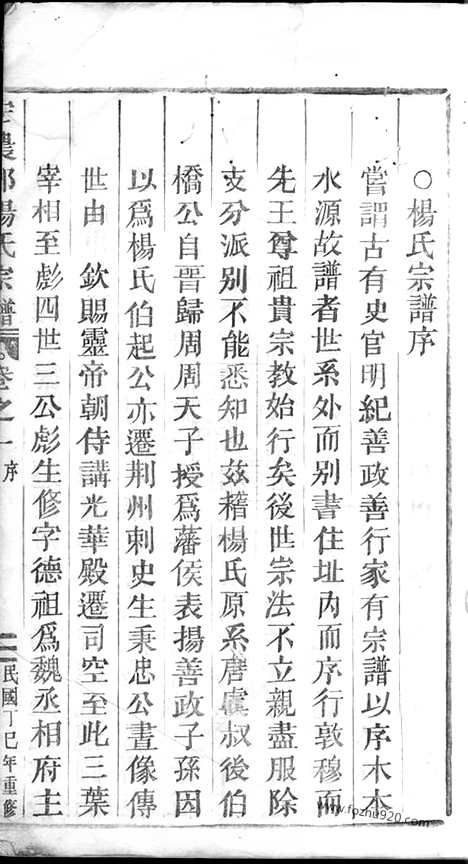 ○楊氏宗譜序
嘗謂古有史官明紀善政善行家有宗譜以序木本
水源故譜者世系外而別書住址內而序行敦穆而
先王尊祖貴宗教始行矣後世宗法不立親盡服除
支分派別不能悉知也茲稽楊氏原系唐虞叔後伯
橋公自晉歸周周天子授為藩侯表揚善政子孫因
以為楊氏伯起公亦遷荆州刺史生秉忠公晝像傳
世由　欽賜靈帝朝侍講光華殿遷司空至此三葉
宰相至彪四世三公彪生修字德祖為魏丞相府主
農郡楊氏宗譜　卷之一　序　二　民國丁巳年重修
www.fozhu920.com